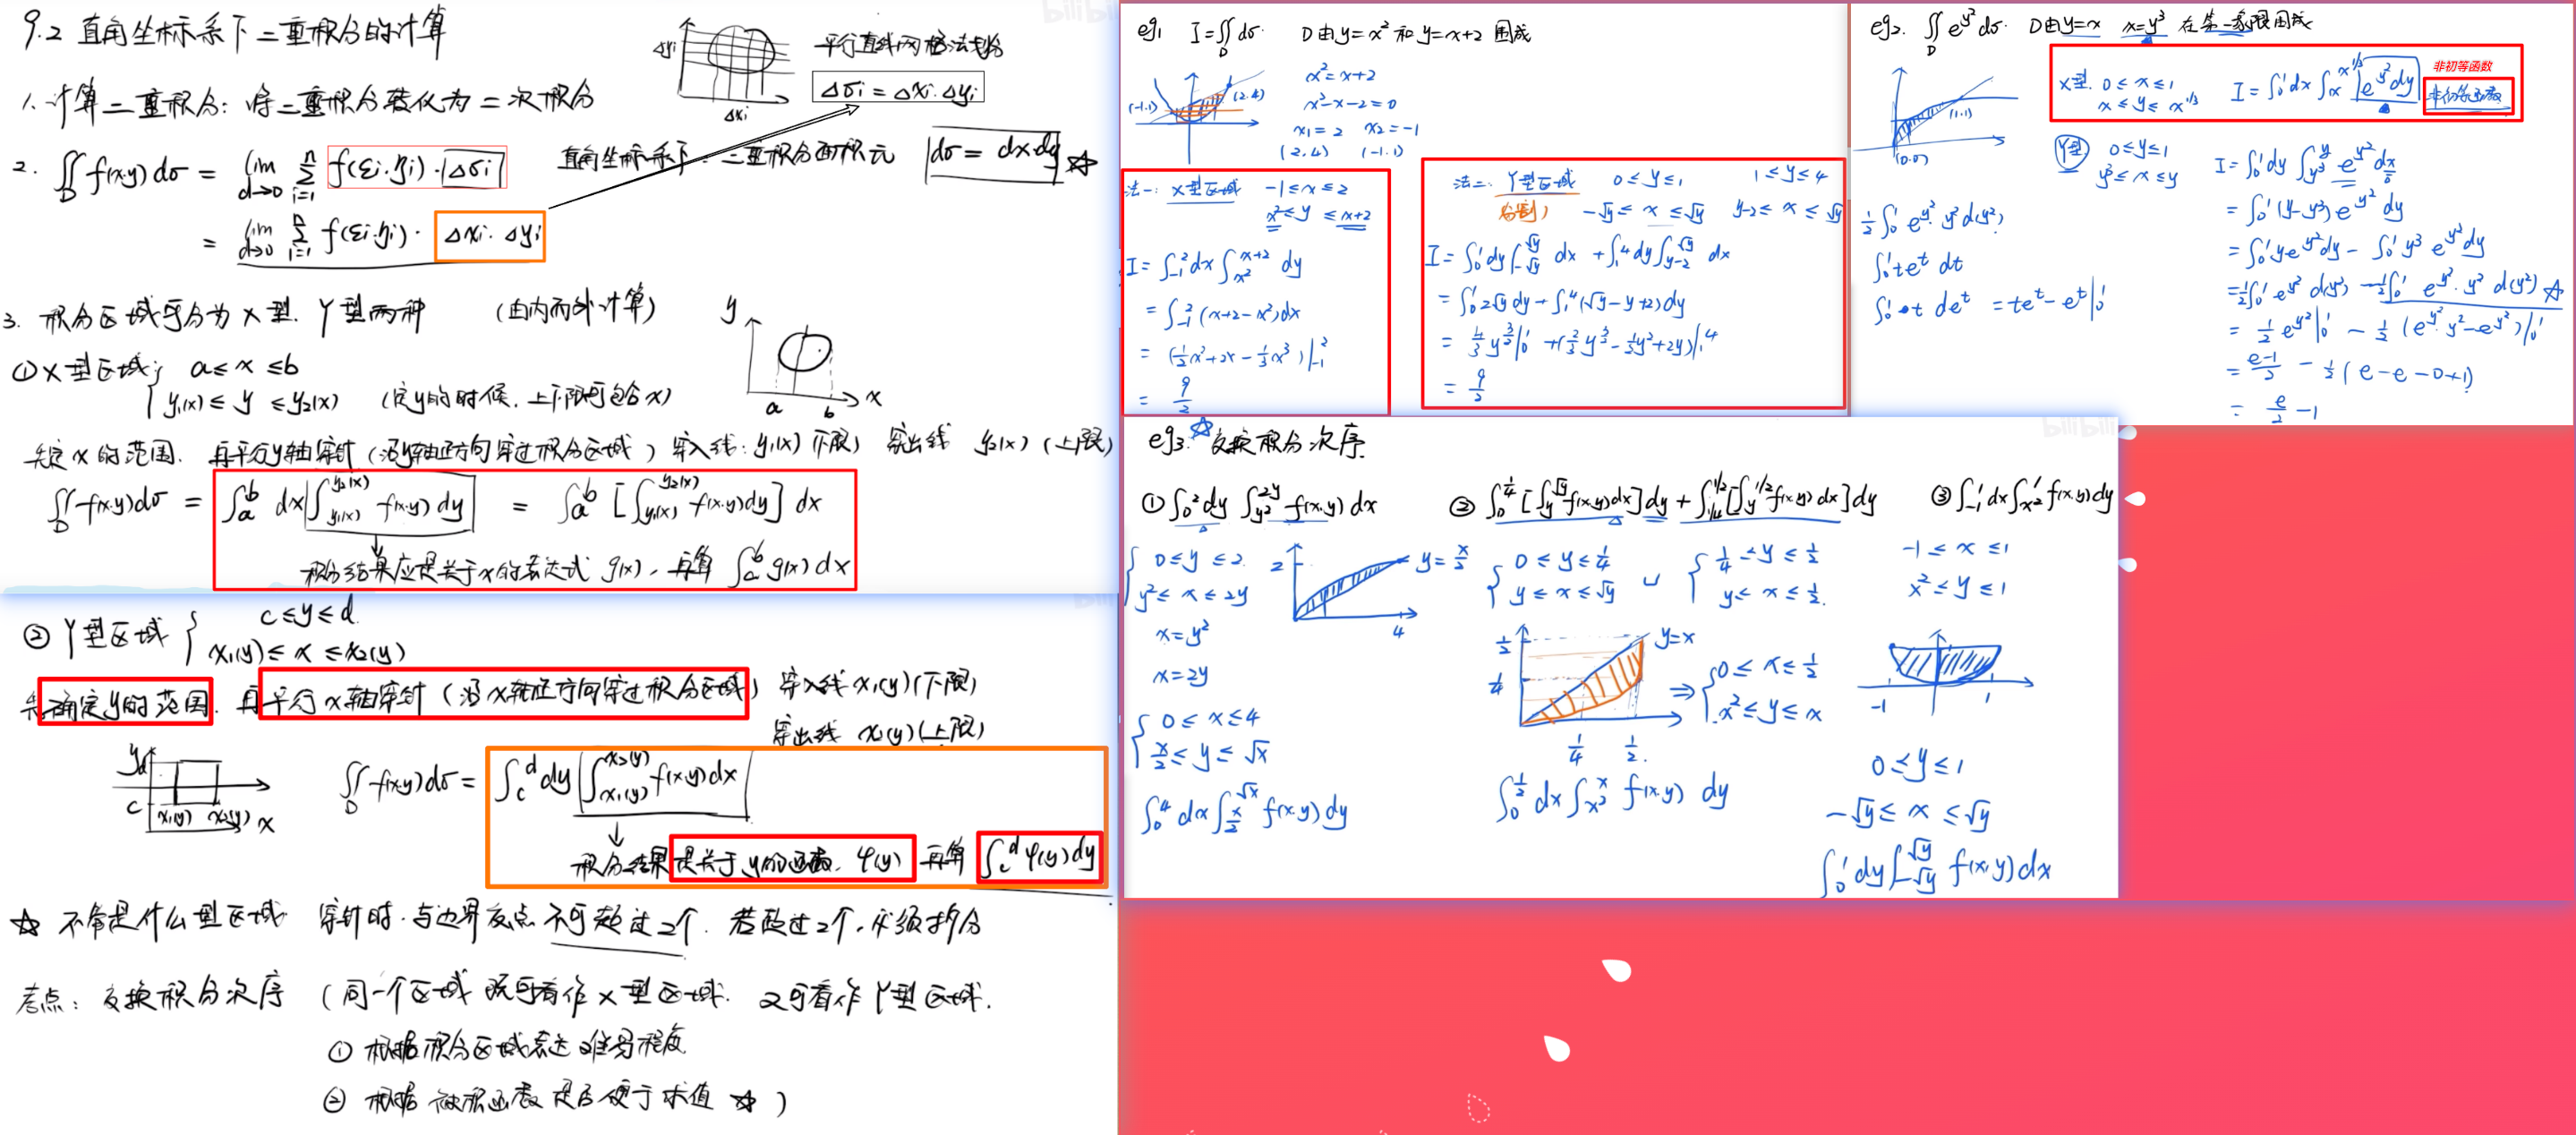 9.2 直角坐标系下二重积分的计算
1. 计算二重积分：将二重积分转化为二次积分
Δyi
Δxi
平行直线网格法划分
Δσi = Δxi·Δyi
2. ∬_D f(x.y)dσ = lim_{d→0} Σ_{i=1}^{n} f(ξi.ηi)·Δσi
直角坐标系下：二重积分面积元 dσ = dx.dy ☆
= lim_{d→0} Σ_{i=1}^{n} f(ξi.ηi)· Δxi·Δyi
3. 积分区域可分为X型. Y型两种 (由内而外计算)
① X型区域: { a≤x≤b
y₁(x)≤y≤y₂(x) (定y的时候. 上下限可包含x)
y
a b x
先定x的范围. 再平行y轴穿针(沿y轴正方向穿过积分区域) 穿入线: y₁(x)(下限) 穿出线 y₂(x)(上限)
∬_D f(x.y)dσ = ∫_a^b dx ∫_{y₁(x)}^{y₂(x)} f(x.y)dy = ∫_a^b [∫_{y₁(x)}^{y₂(x)} f(x.y)dy] dx
↓
积分结果应是关于x的表达式 g(x), 再算 ∫_a^b g(x)dx
② Y型区域 { c≤y≤d
x₁(y)≤x≤x₂(y)
先确定y的范围. 再平行x轴穿针(沿x轴正方向穿过积分区域) 穿入线 x₁(y)(下限)
穿出线 x₂(y)(上限)
y
d
c
x₁(y) x₂(y) x
∬_D f(x.y)dσ = ∫_c^d dy ∫_{x₁(y)}^{x₂(y)} f(x.y)dx
↓
积分结果是关于y的函数. φ(y) 再算 ∫_c^d φ(y)dy
☆ 不管是什么型区域 穿针时.与边界交点不可超过2个. 若超过2个, 必须拆分
考点: 交换积分次序 (同一个区域 既可看作X型区域. 又可看作Y型区域.
① 根据积分区域表达难易程度
② 根据被积函数是否便于求值 ☆ )
eg1 I=∬_D dσ. D由y=x²和y=x+2围成
(-1.1)
(2.4)
x²=x+2
x²-x-2=0
x₁=2 x₂=-1
(2.4) (-1.1)
法一: X型区域 -1≤x≤2
x²≤y≤x+2
I=∫_{-1}^2 dx ∫_{x²}^{x+2} dy
=∫_{-1}^2 (x+2-x²)dx
=(½x²+2x-⅓x³)|_{-1}^2
= 9/2
法二: Y型区域 0≤y≤1 1≤y≤4
(分割) -√y≤x≤√y y-2≤x≤√y
I=∫_0^1 dy ∫_{-√y}^{√y} dx + ∫_1^4 dy ∫_{y-2}^{√y} dx
=∫_0^1 2√y dy + ∫_1^4 (√y-y+2)dy
= 4/3 y^{3/2}|_0^1 + (2/3 y^{3/2} - ½y²+2y)|_1^4
= 9/2
eg2. ∬_D e^{y²}dσ. D由y=x x=y³ 在第一象限围成
(1.1)
(0.0)
X型. 0≤x≤1
x≤y≤x^{1/3}
I=∫_0^1 dx ∫_x^{x^{1/3}} e^{y²}dy
非初等函数
非初等函数
Y型 0≤y≤1
y³≤x≤y
I=∫_0^1 dy ∫_{y³}^y e^{y²}dx
=∫_0^1 (y-y³)e^{y²}dy
=∫_0^1 ye^{y²}dy - ∫_0^1 y³e^{y²}dy
=½∫_0^1 e^{y²}d(y²) - ½∫_0^1 e^{y²}·y² d(y²) ☆
= ½e^{y²}|_0^1 - ½(e^{y²}·y²-e^{y²})|_0^1
= (e-1)/2 - ½(e-e-0+1)
= e/2 -1
½∫_0^1 e^{y²}·y²d(y²)
∫_0^1 te^t dt
∫_0^1 t de^t = te^t-e^t|_0^1
eg3. ☆ 交换积分次序
① ∫_0^2 dy ∫_{y²}^{2y} f(x.y)dx
{ 0≤y≤2
y²≤x≤2y
x=y²
x=2y
2
4
y=x/2
{ 0≤x≤4
x/2≤y≤√x
∫_0^4 dx ∫_{x/2}^{√x} f(x.y)dy
② ∫_0^{1/4} [∫_y^{√y} f(x.y)dx]dy + ∫_{1/4}^{1/2} [∫_y^{1/2} f(x.y)dx]dy
{ 0≤y≤1/4
y≤x≤√y ∪ { 1/4≤y≤1/2
y≤x≤1/2.
1/2
1/4
y=x
1/4 1/2.
⇒ { 0≤x≤1/2
x²≤y≤x
∫_0^{1/2} dx ∫_{x²}^x f(x.y) dy
③ ∫_{-1}^1 dx ∫_{x²}^1 f(x.y)dy
-1≤x≤1
x²≤y≤1
-1 1
0≤y≤1
-√y≤x≤√y
∫_0^1 dy ∫_{-√y}^{√y} f(x.y)dx
bilibili